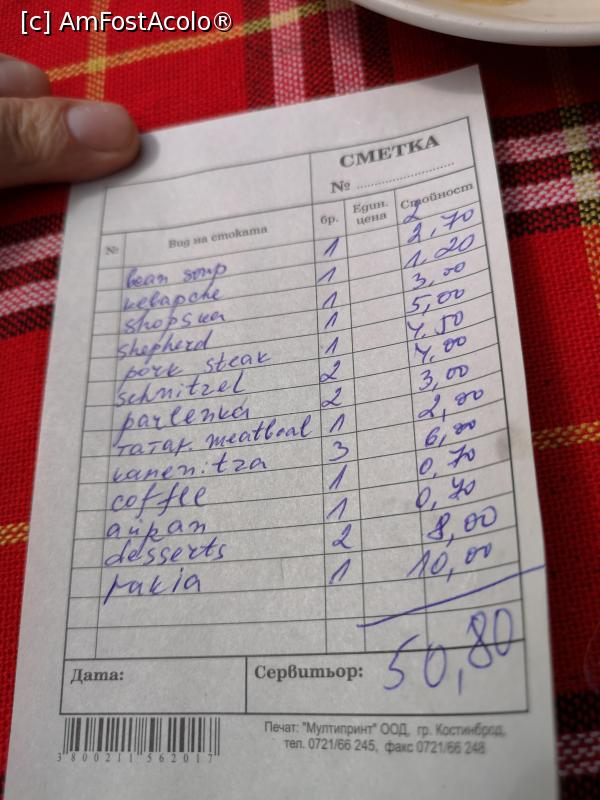 [c] AmFostAcolo®
СМЕТКА
№ ....................
№ Вид на стоката бр. Един. цена Стойност
bean soup 1 2,70
kebapche 1 1,20
shopska 1 3,00
shepherd 1 5,00
pork steak 1 4,50
schnitzel 2 4,00
parlenka 2 3,00
татар. meatball 1 2,00
kamenitza 3 6,00
coffee 1 0,70
айран 1 0,70
desserts 2 8,00
rakia 1 10,00
50,80
Дата: Сервитьор:
3800211562017
Печат: "Мултипринт" ООД, гр. Костинброд,
тел. 0721/66 245, факс 0721/66 248